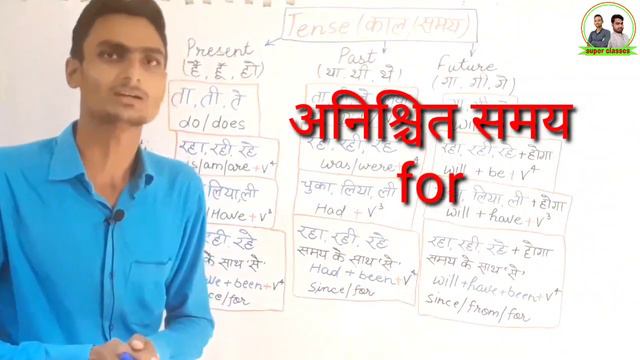 Tense/काल/समय
Present
(है, हूँ, हो)
ता, ती, ते
do/does
रहा, रही, रहे
is/am/are + v⁴
लिया, ली
/Have + v³
रही रहे
के साथ 'से'
have + been + v⁴
since/for
Past
(था, थी, थे)
रहा, रही, रहे
was/were + v⁴
चुका, लिया, ली
Had + v³
रहा, रही, रहे
समय के साथ 'से'
Had + been + v⁴
since/for
Future
(गा, गी, गे)
रहा, रही, रहे + होगा
will + be + v⁴
लिया, ली + होगा
will + have + v³
रहा, रही रहे + होगा
समय के साथ 'से'
will + have + been + v⁴
since/from/for
अनिश्चित समय
for
super classes